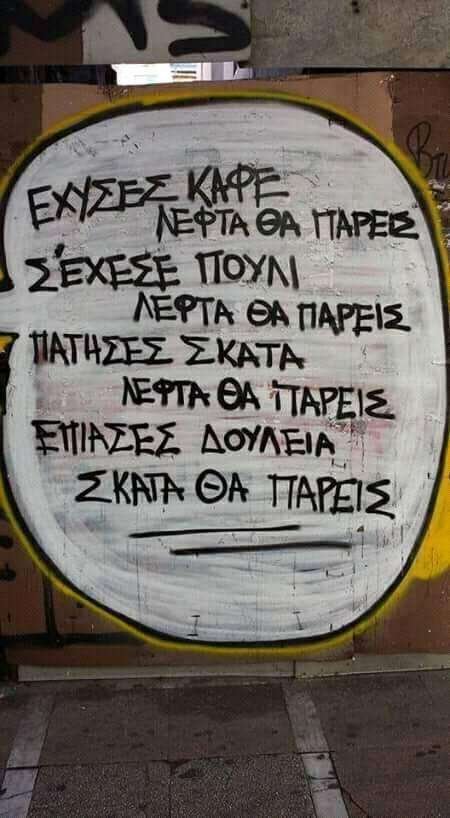 ΕΧΥΣΕΣ ΚΑΦΕ
ΛΕΦΤΑ ΘΑ ΠΑΡΕΙΣ
Σ'ΕΧΕΣΕ ΠΟΥΛΙ
ΛΕΦΤΑ ΘΑ ΠΑΡΕΙΣ
ΠΑΤΗΣΕΣ ΣΚΑΤΑ
ΛΕΦΤΑ ΘΑ ΠΑΡΕΙΣ
ΕΠΙΑΣΕΣ ΔΟΥΛΕΙΑ
ΣΚΑΤΑ ΘΑ ΠΑΡΕΙΣ